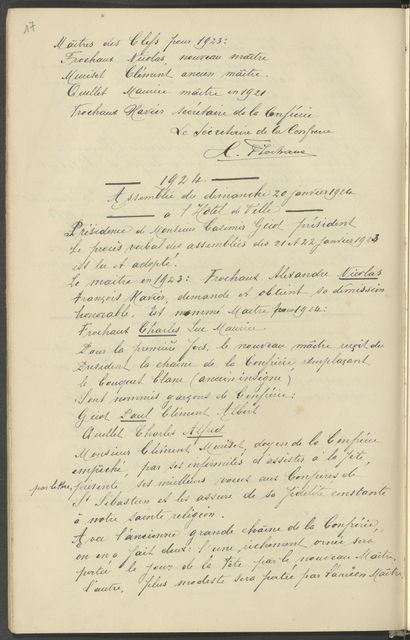 17
Maîtres des Clefs pour 1923:
Frochaux Nicolas, nouveau maître
Muriset Clément ancien maître.
Quellet Maurice maître en 1920
Frochaux Xavier secrétaire de la Confrérie
Le Secrétaire de la Confrérie
X. Frochaux
1924.
Assemblée du dimanche 20 janvier 1924
à l'Hôtel de Ville
Présidence de Monsieur Casimir Gicot président
Le procès verbal des assemblées des 21 et 22 janvier 1923
est lu et adopté.
Le maître en 1923: Frochaux Alexandre Nicolas
François Xavier, demande et obtient sa démission
honorable. Est nommé Maître pour 1924:
Frochaux Charles Luc Maurice.
Pour la première fois, le nouveau maître reçoit du
Président la chaîne de la Confrérie remplaçant
le bouquet blanc (ancien insigne)
Sont nommés garçons de Confrérie:
Gicot Paul Clément Albert
Quellet Charles Alfred
Monsieur Clément Muriset, doyen de la Confrérie
empêché par ses infirmités d'assister à la fête,
par lettre, présente ses meilleurs voeux aux Confrères de
St Sébastien et les assure de sa fidélité constante
à notre sainte religion.
Avec l'ancienne grande chaîne de la Confrérie,
on en a fait deux: l'une richement ornée sera
portée le jour de la Fête par le nouveau Maître,
l'autre, plus modeste sera portée par l'ancien Maître